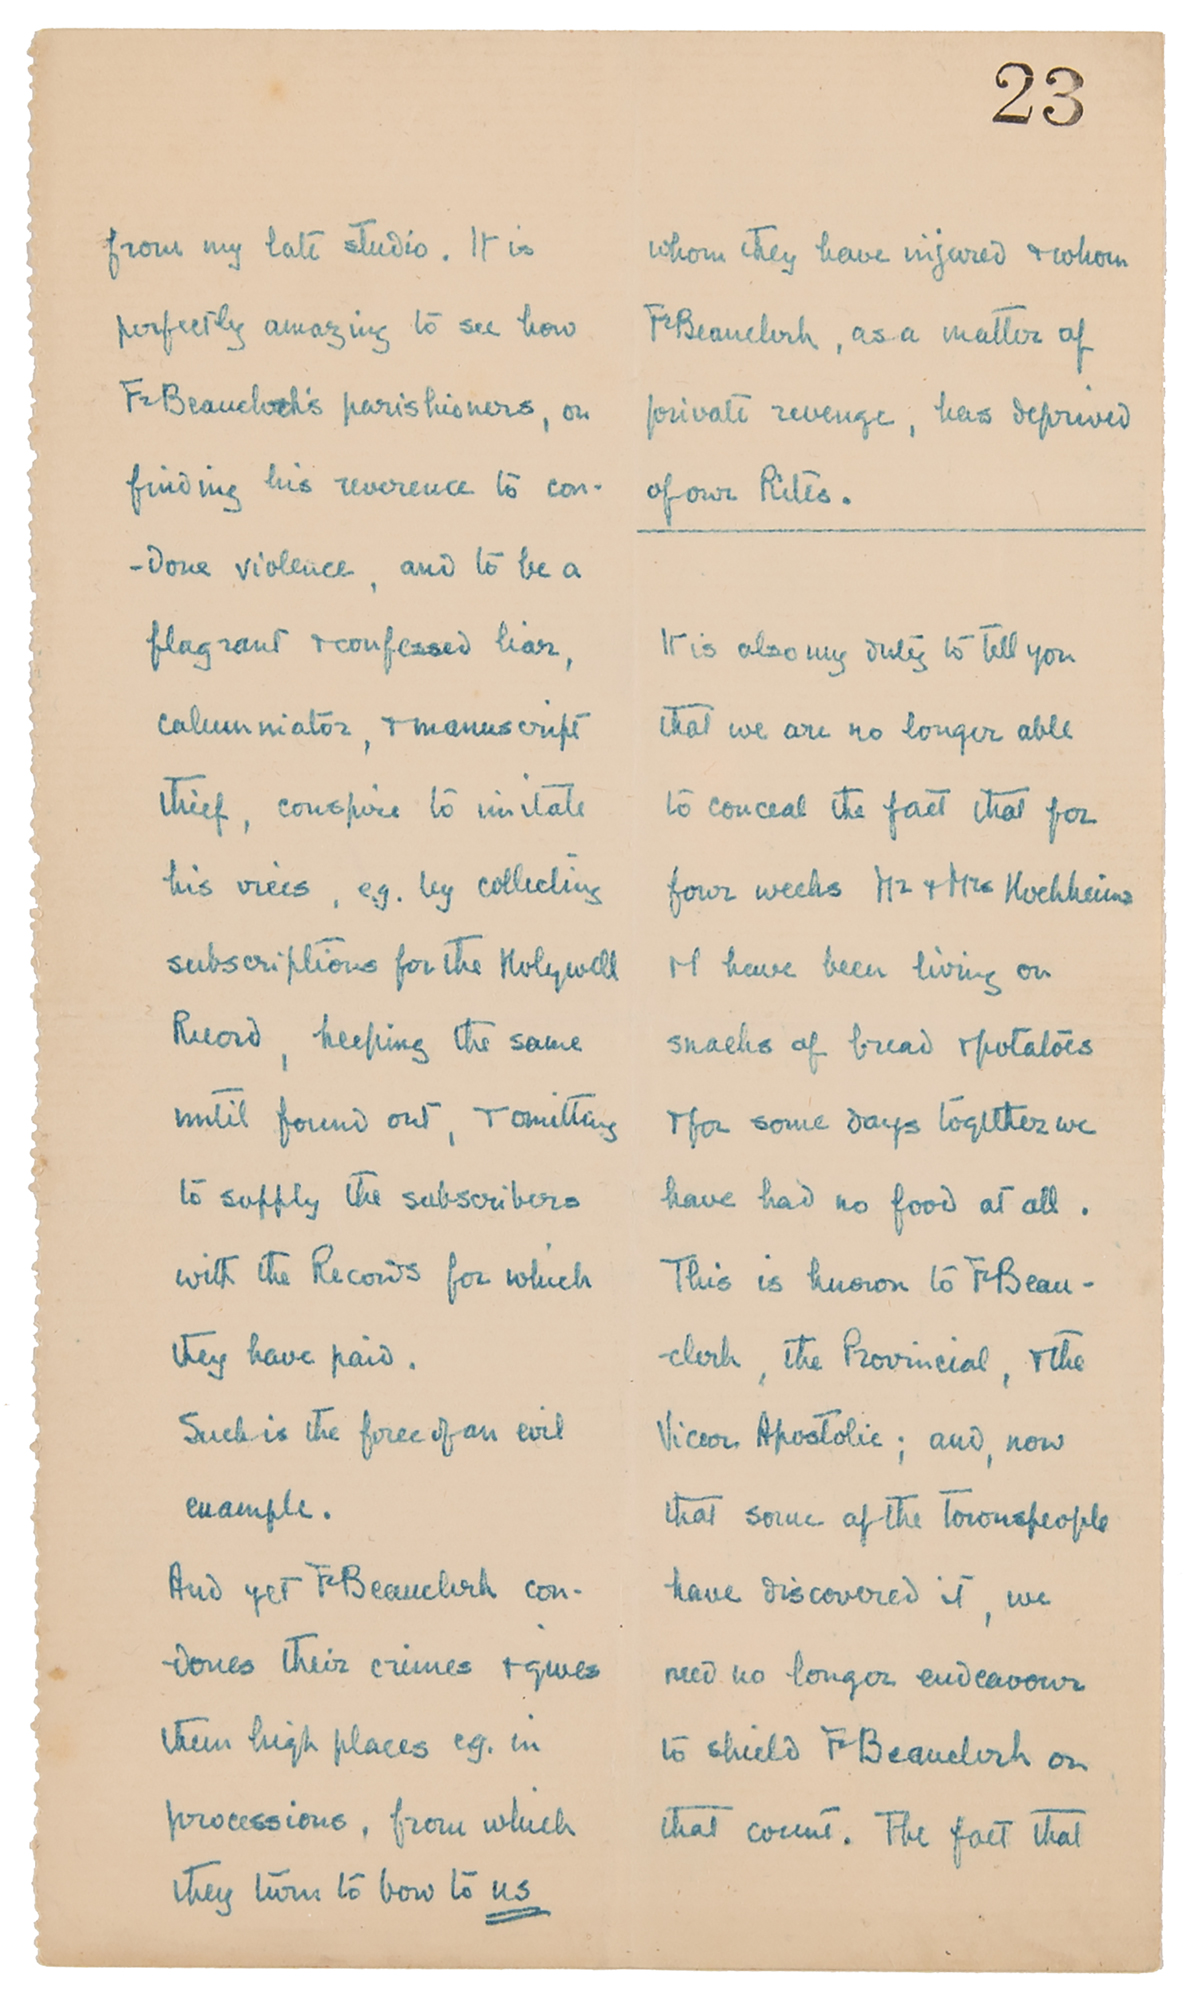 23
from my late studio. It is
perfectly amazing to see how
Fr Beauclerk's parishioners, on
finding his reverence to con-
-done violence, and to be a
flagrant & confessed liar,
calumniator, & manuscript
thief, conspire to imitate
his vices, e.g. by collecting
subscriptions for the Holywell
Record, keeping the same
until found out, & omitting
to supply the subscribers
with the Records for which
they have paid.
Such is the force of an evil
example.
And yet Fr Beauclerk con-
-dones their crimes & gives
them high places eg. in
processions, from which
they turn to bow to us
whom they have injured & whom
Fr Beauclerk, as a matter of
private revenge, has deprived
of our Rites.
It is also my duty to tell you
that we are no longer able
to conceal the fact that for
four weeks Mr & Mrs Hochheimer
& I have been living on
snacks of bread & potatoes
& for some days together we
have had no food at all.
This is known to Fr Beau-
-clerk, the Provincial, & the
Vicar Apostolic; and, now
that some of the townspeople
have discovered it, we
need no longer endeavour
to shield Fr Beauclerk on
that count. The fact that